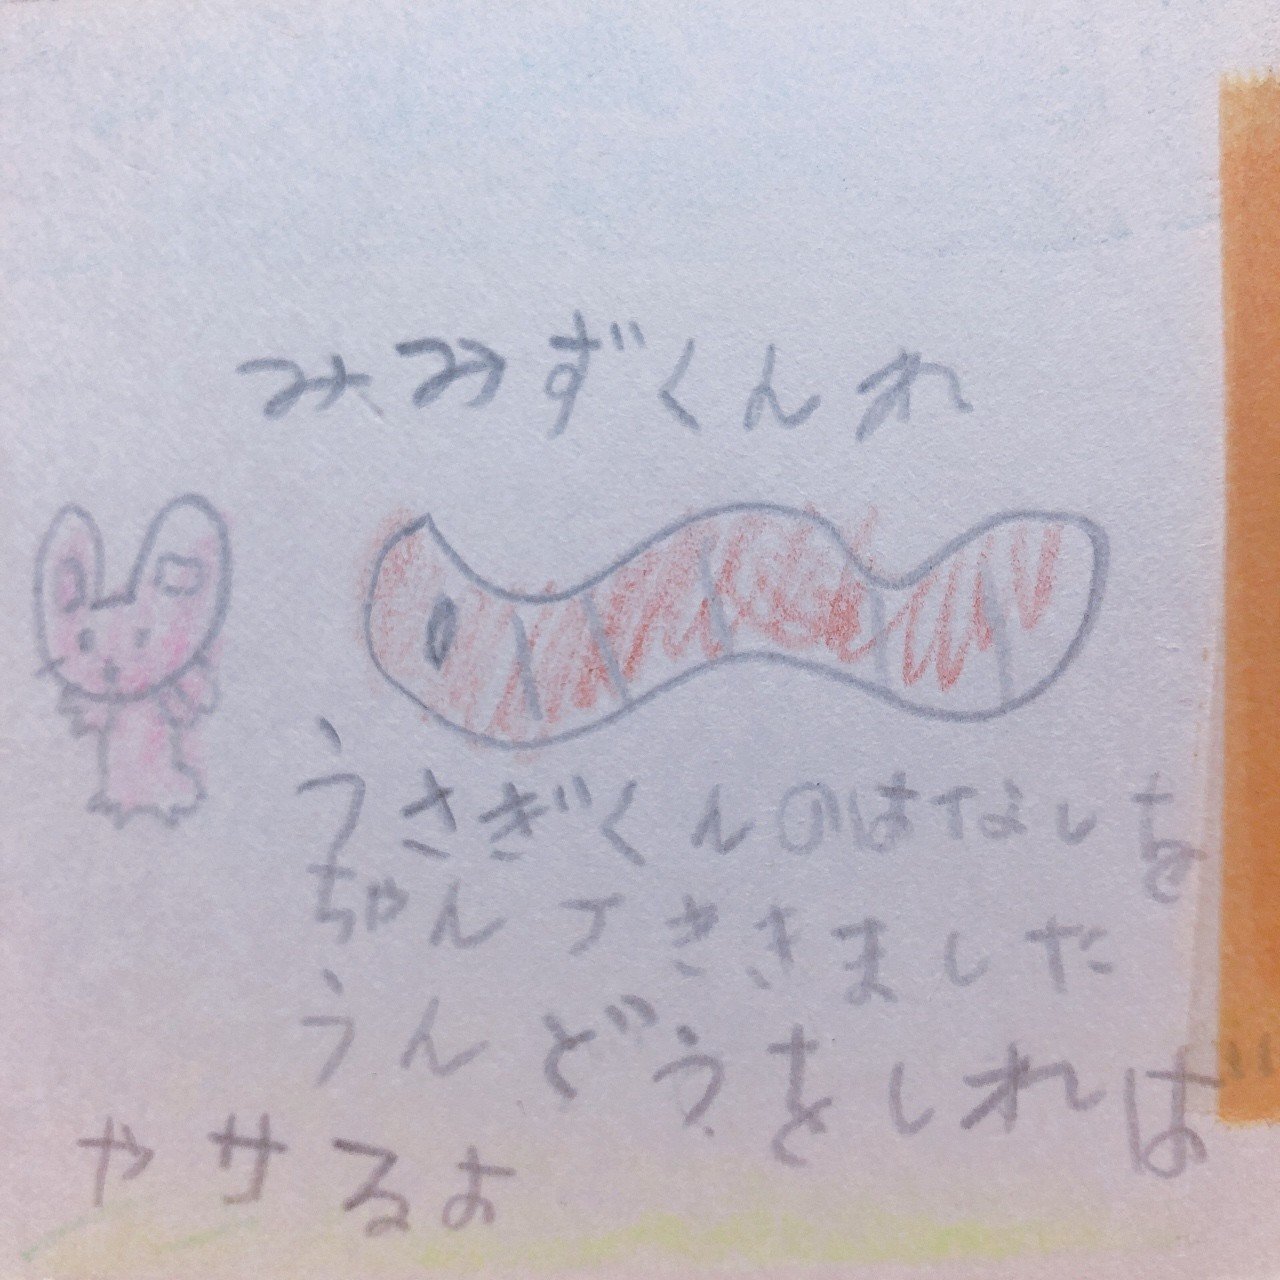 みみずくんれ
うさぎくんのはなしを
ちゃんてききました
うんどうをしれば
やせるよ